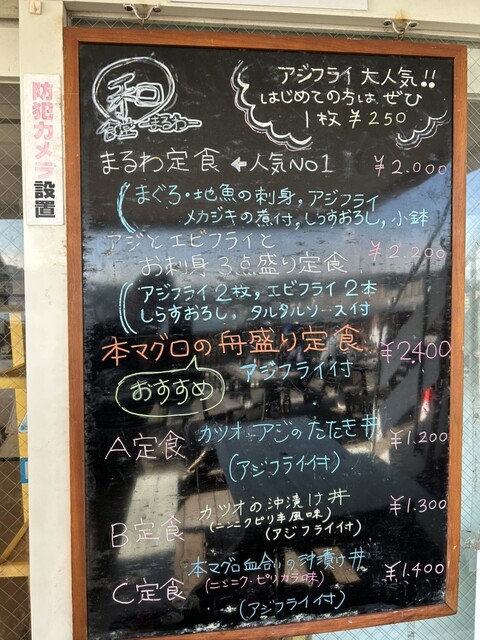 防犯カメラ設置
和
食堂 まるわ
アジフライ大人気!!
はじめての方は、ぜひ
1枚 ¥250
まるわ定食 ←人気NO1 ¥2.000
まぐろ・地魚の刺身,アジフライ
メカジキの煮付,しらすおろし,小鉢
アジとエビフライと
お刺身3点盛り定食 ¥2.200
アジフライ2枚,エビフライ2本
しらすおろし,タルタルソース付
本マグロの舟盛り定食 ¥2400
アジフライ付
おすすめ
A定食 カツオとアジのたたき丼 ¥1.200
(アジフライ付)
B定食 カツオの沖漬け丼 ¥1.300
(ニンニクピリ辛風味)
(アジフライ付)
C定食 本マグロ血合いの沖漬け丼 ¥1.400
(ニンニク・ピリカラ味)
(アジフライ付)